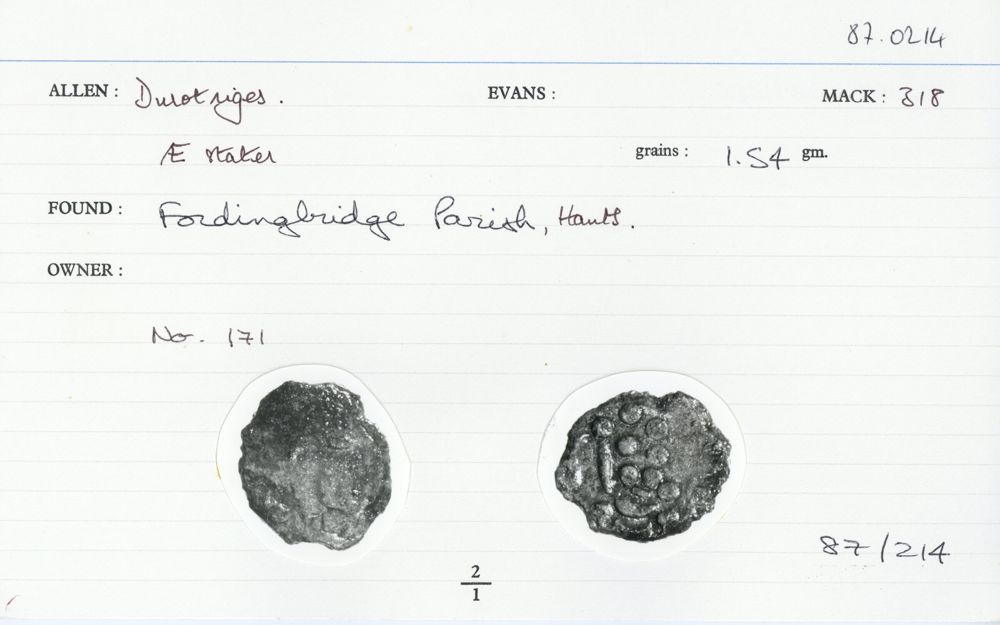 87.0214
ALLEN : Durotriges. EVANS : MACK : 318
Æ stater grains : 1.54 gm.
FOUND : Fordingbridge Parish, Hants.
OWNER :
No. 171
87/214
2
1